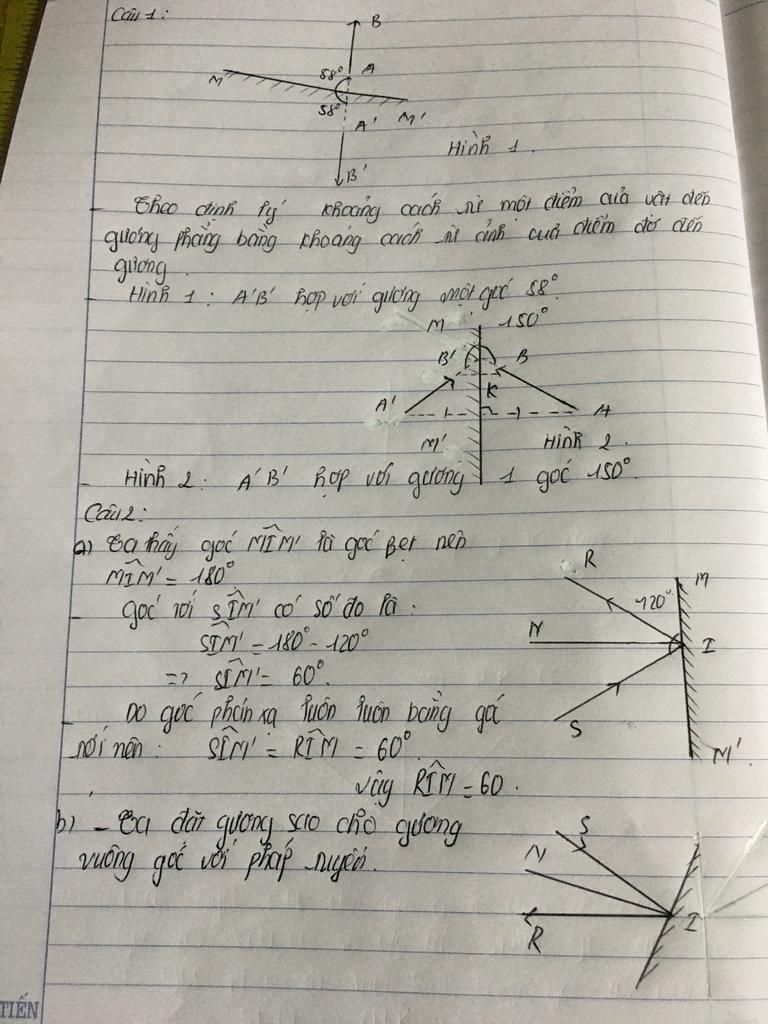 Câu 1:
B
58° A
M
58°
A' M'
Hình 1.
B'
- Theo định lý khoảng cách từ một điểm của vật đến
gương phẳng bằng khoảng cách từ ảnh của điểm đó đến
gương.
- Hình 1: A'B' hợp với gương một góc 58°.
M 150°
B' B
K
A' A
M' Hình 2.
- Hình 2: A'B' hợp với gương 1 góc 150°.
Câu 2:
a) Ta thấy góc MIM' là góc bẹt nên
MIM' = 180°
- góc tới SIM' có số đo là:
SIM' = 180° - 120°
=> SIM' = 60°.
- Do góc phản xạ luôn luôn bằng gó
tới nên: SIM' = RIM = 60°.
Vậy RIM = 60.
R M
120°
N I
S
M'
b) - Ta đặt gương sao cho gương
vuông góc với pháp tuyến.
S
N
I
R
TIẾN